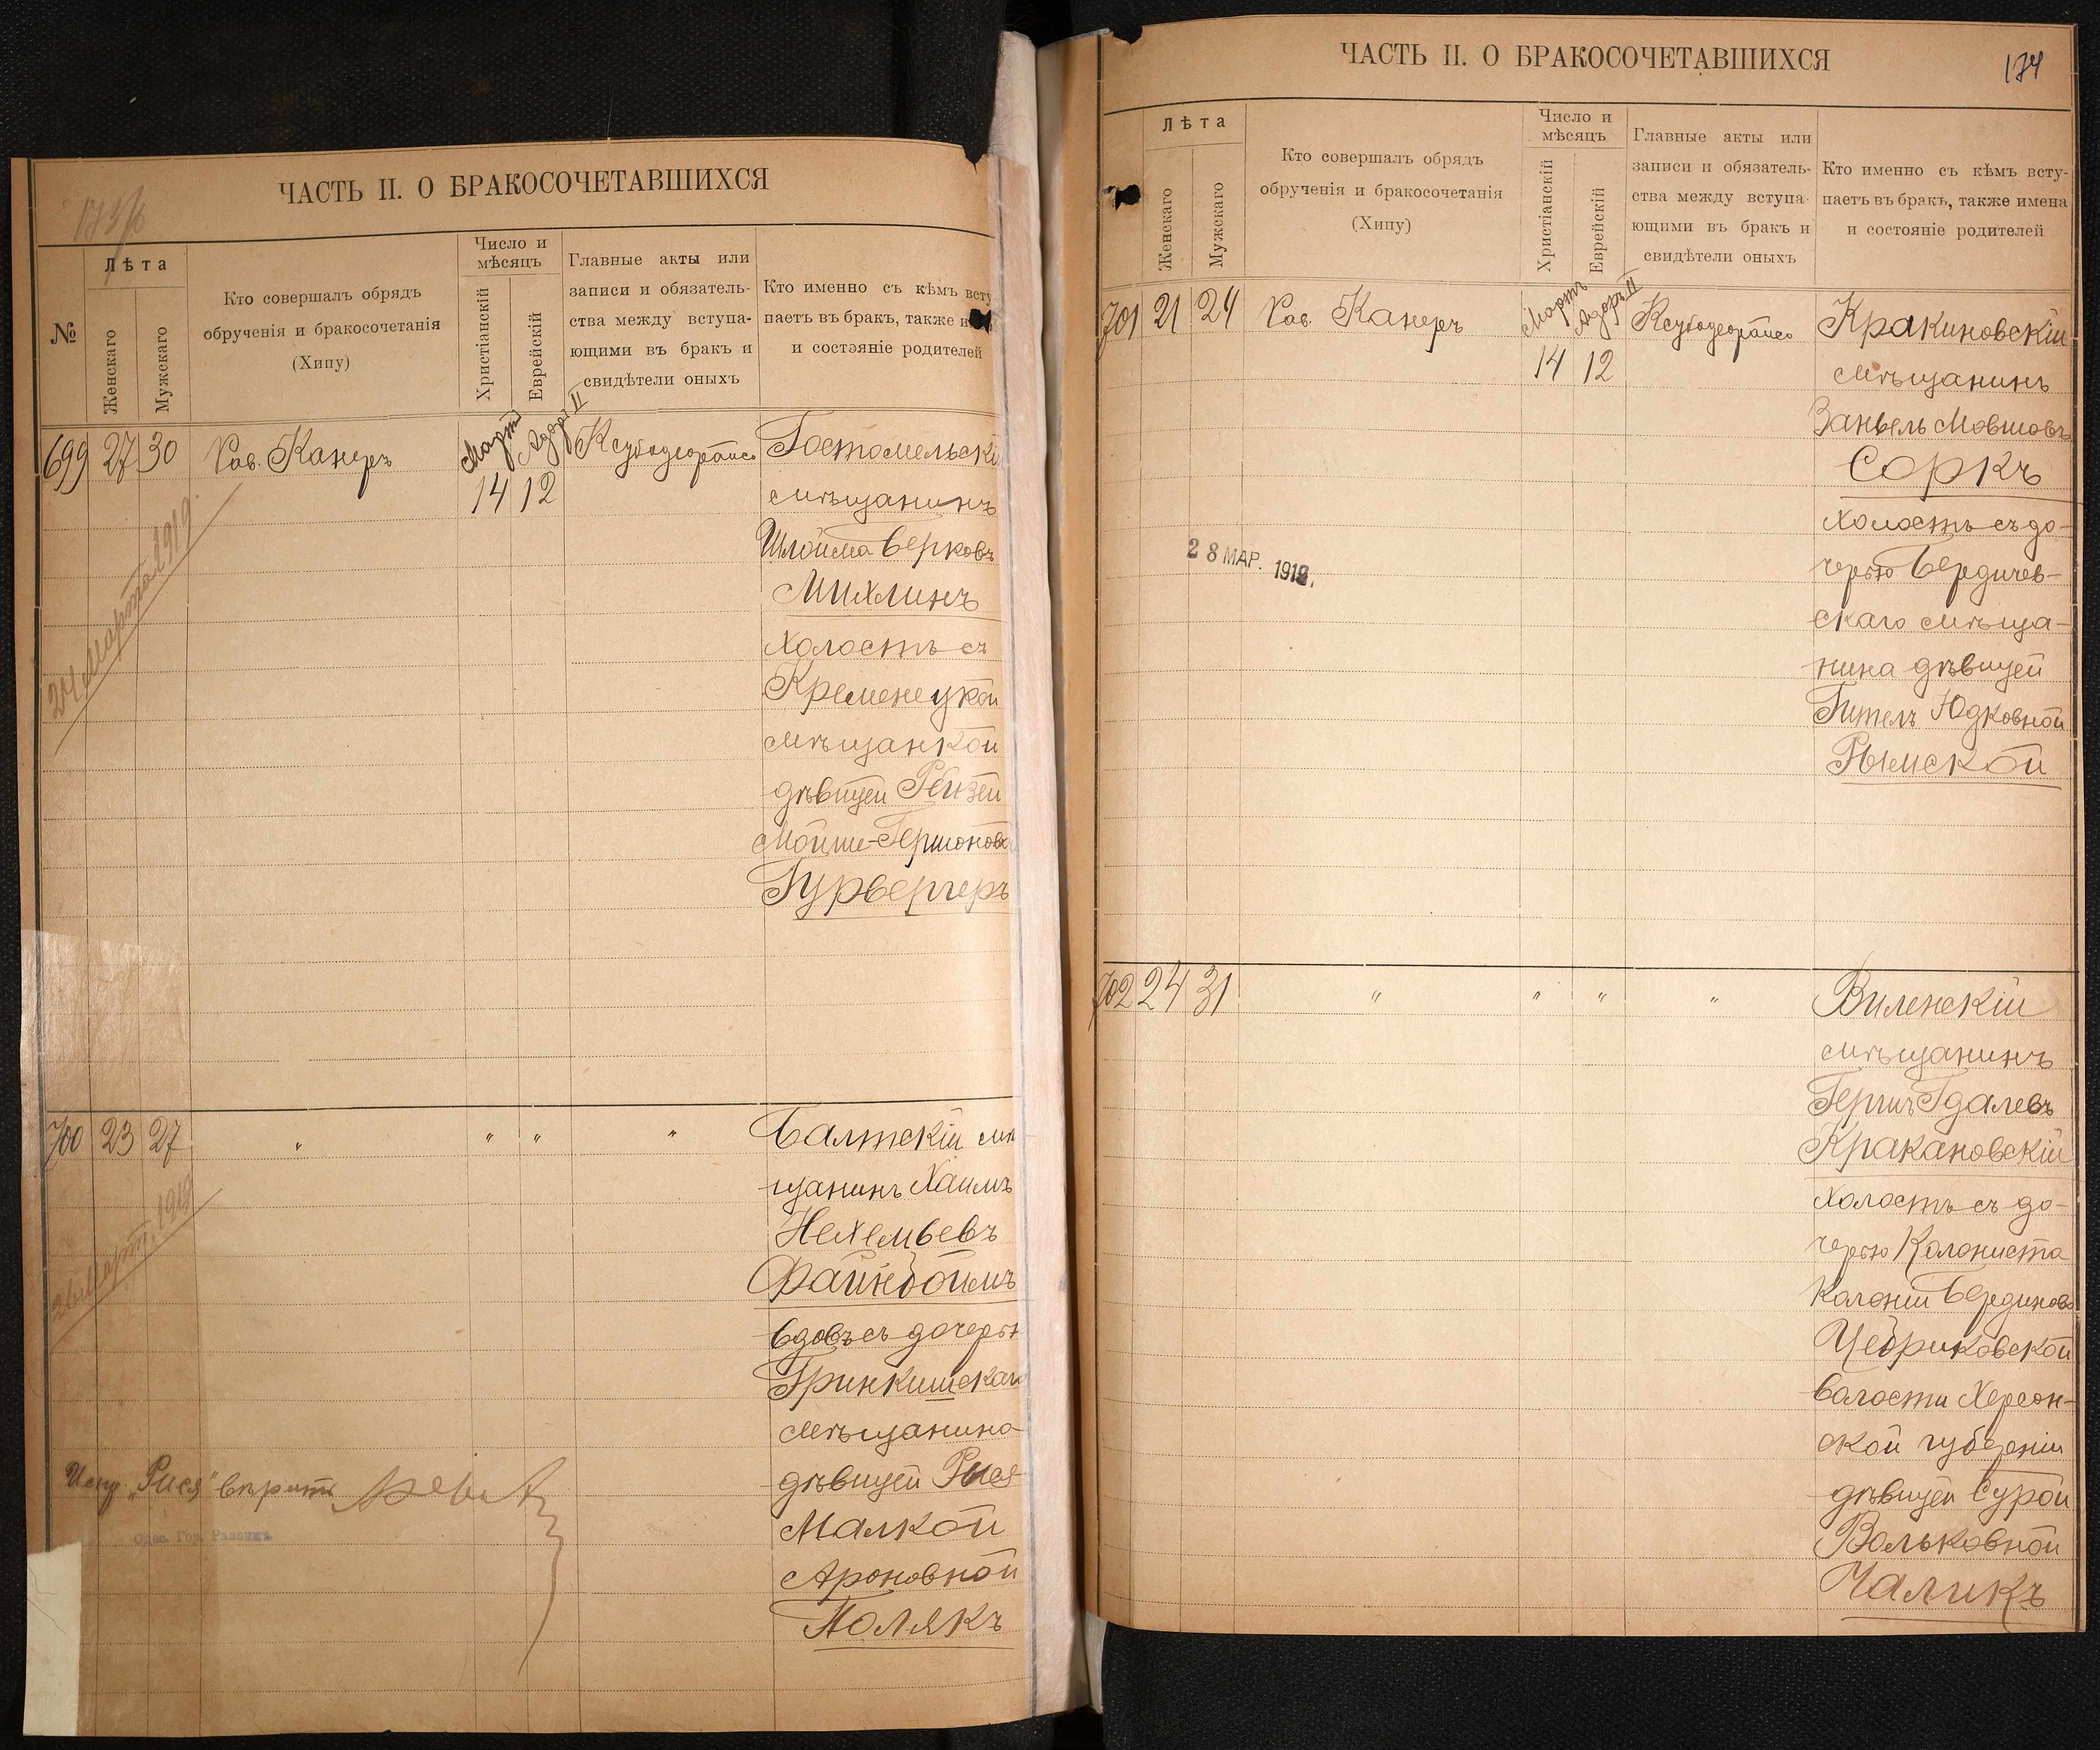 ЧАСТЬ II. О БРАКОСОЧЕТАВШИХСЯ
173/б
№
Лѣта
Женскаго
Мужскаго
Кто совершалъ обрядъ
обрученія и бракосочетанія
(Хипу)
Число и
мѣсяцъ
Христіанскій
Еврейскій
Главные акты или
записи и обязатель-
ства между вступа-
ющими въ бракъ и
свидѣтели оныхъ
Кто именно съ кѣмъ всту
паетъ въ бракъ, также и
и состояніе родителей
699 27 30 Рав. Канеръ Мартъ Адаръ II Гостомельскі
14 12 мѣщанинъ
Шлойма Берковъ
Михлинъ
холостъ съ
Кременецкой
мѣщанкой
дѣвицей Рейзей
Мойше-Гершонов
Гурвергеръ
24 Марта 1919.
700 23 27 " " " " Балтскій мѣ
щанинъ Хаимъ
Нехемьевъ
Файнбоймъ
вдовъ съ дочерью
Гринкишскаго
мѣщанина
дѣвицей Рися
Малкой
Ароновной
Полякъ
Испр. „Рися" вѣрить
Одес. Гор. Раввинъ
ЧАСТЬ II. О БРАКОСОЧЕТАВШИХСЯ
174
Лѣта
Женскаго
Мужскаго
Кто совершалъ обрядъ
обрученія и бракосочетанія
(Хипу)
Число и
мѣсяцъ
Христіанскій
Еврейскій
Главные акты или
записи и обязатель-
ства между вступа-
ющими въ бракъ и
свидѣтели оныхъ
Кто именно съ кѣмъ всту-
паетъ въ бракъ, также имена
и состояніе родителей
701 21 24 Рав. Канеръ Мартъ Адаръ II Кракиновскій
14 12 мѣщанинъ
Занвель Мовшовъ
Соркъ
холостъ съ до-
черью Бердичев-
скаго мѣща-
нина дѣвицей
Гитель Юдковной
Рымской
28 МАР. 1919.
702 24 31 " " " " Виленскій
мѣщанинъ
Гершъ Гдалевъ
Кракановскій
холостъ съ до-
черью Колониста
Колоніи
волости Херсон-
ской губерніи
дѣвицей Сурой
Вольковной
Чаликъ